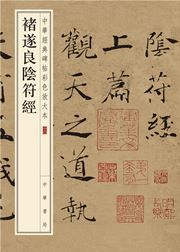 中華經典碑帖彩色放大本
褚遂良陰符經
中華書局
陰符經
上篇
觀天之道執